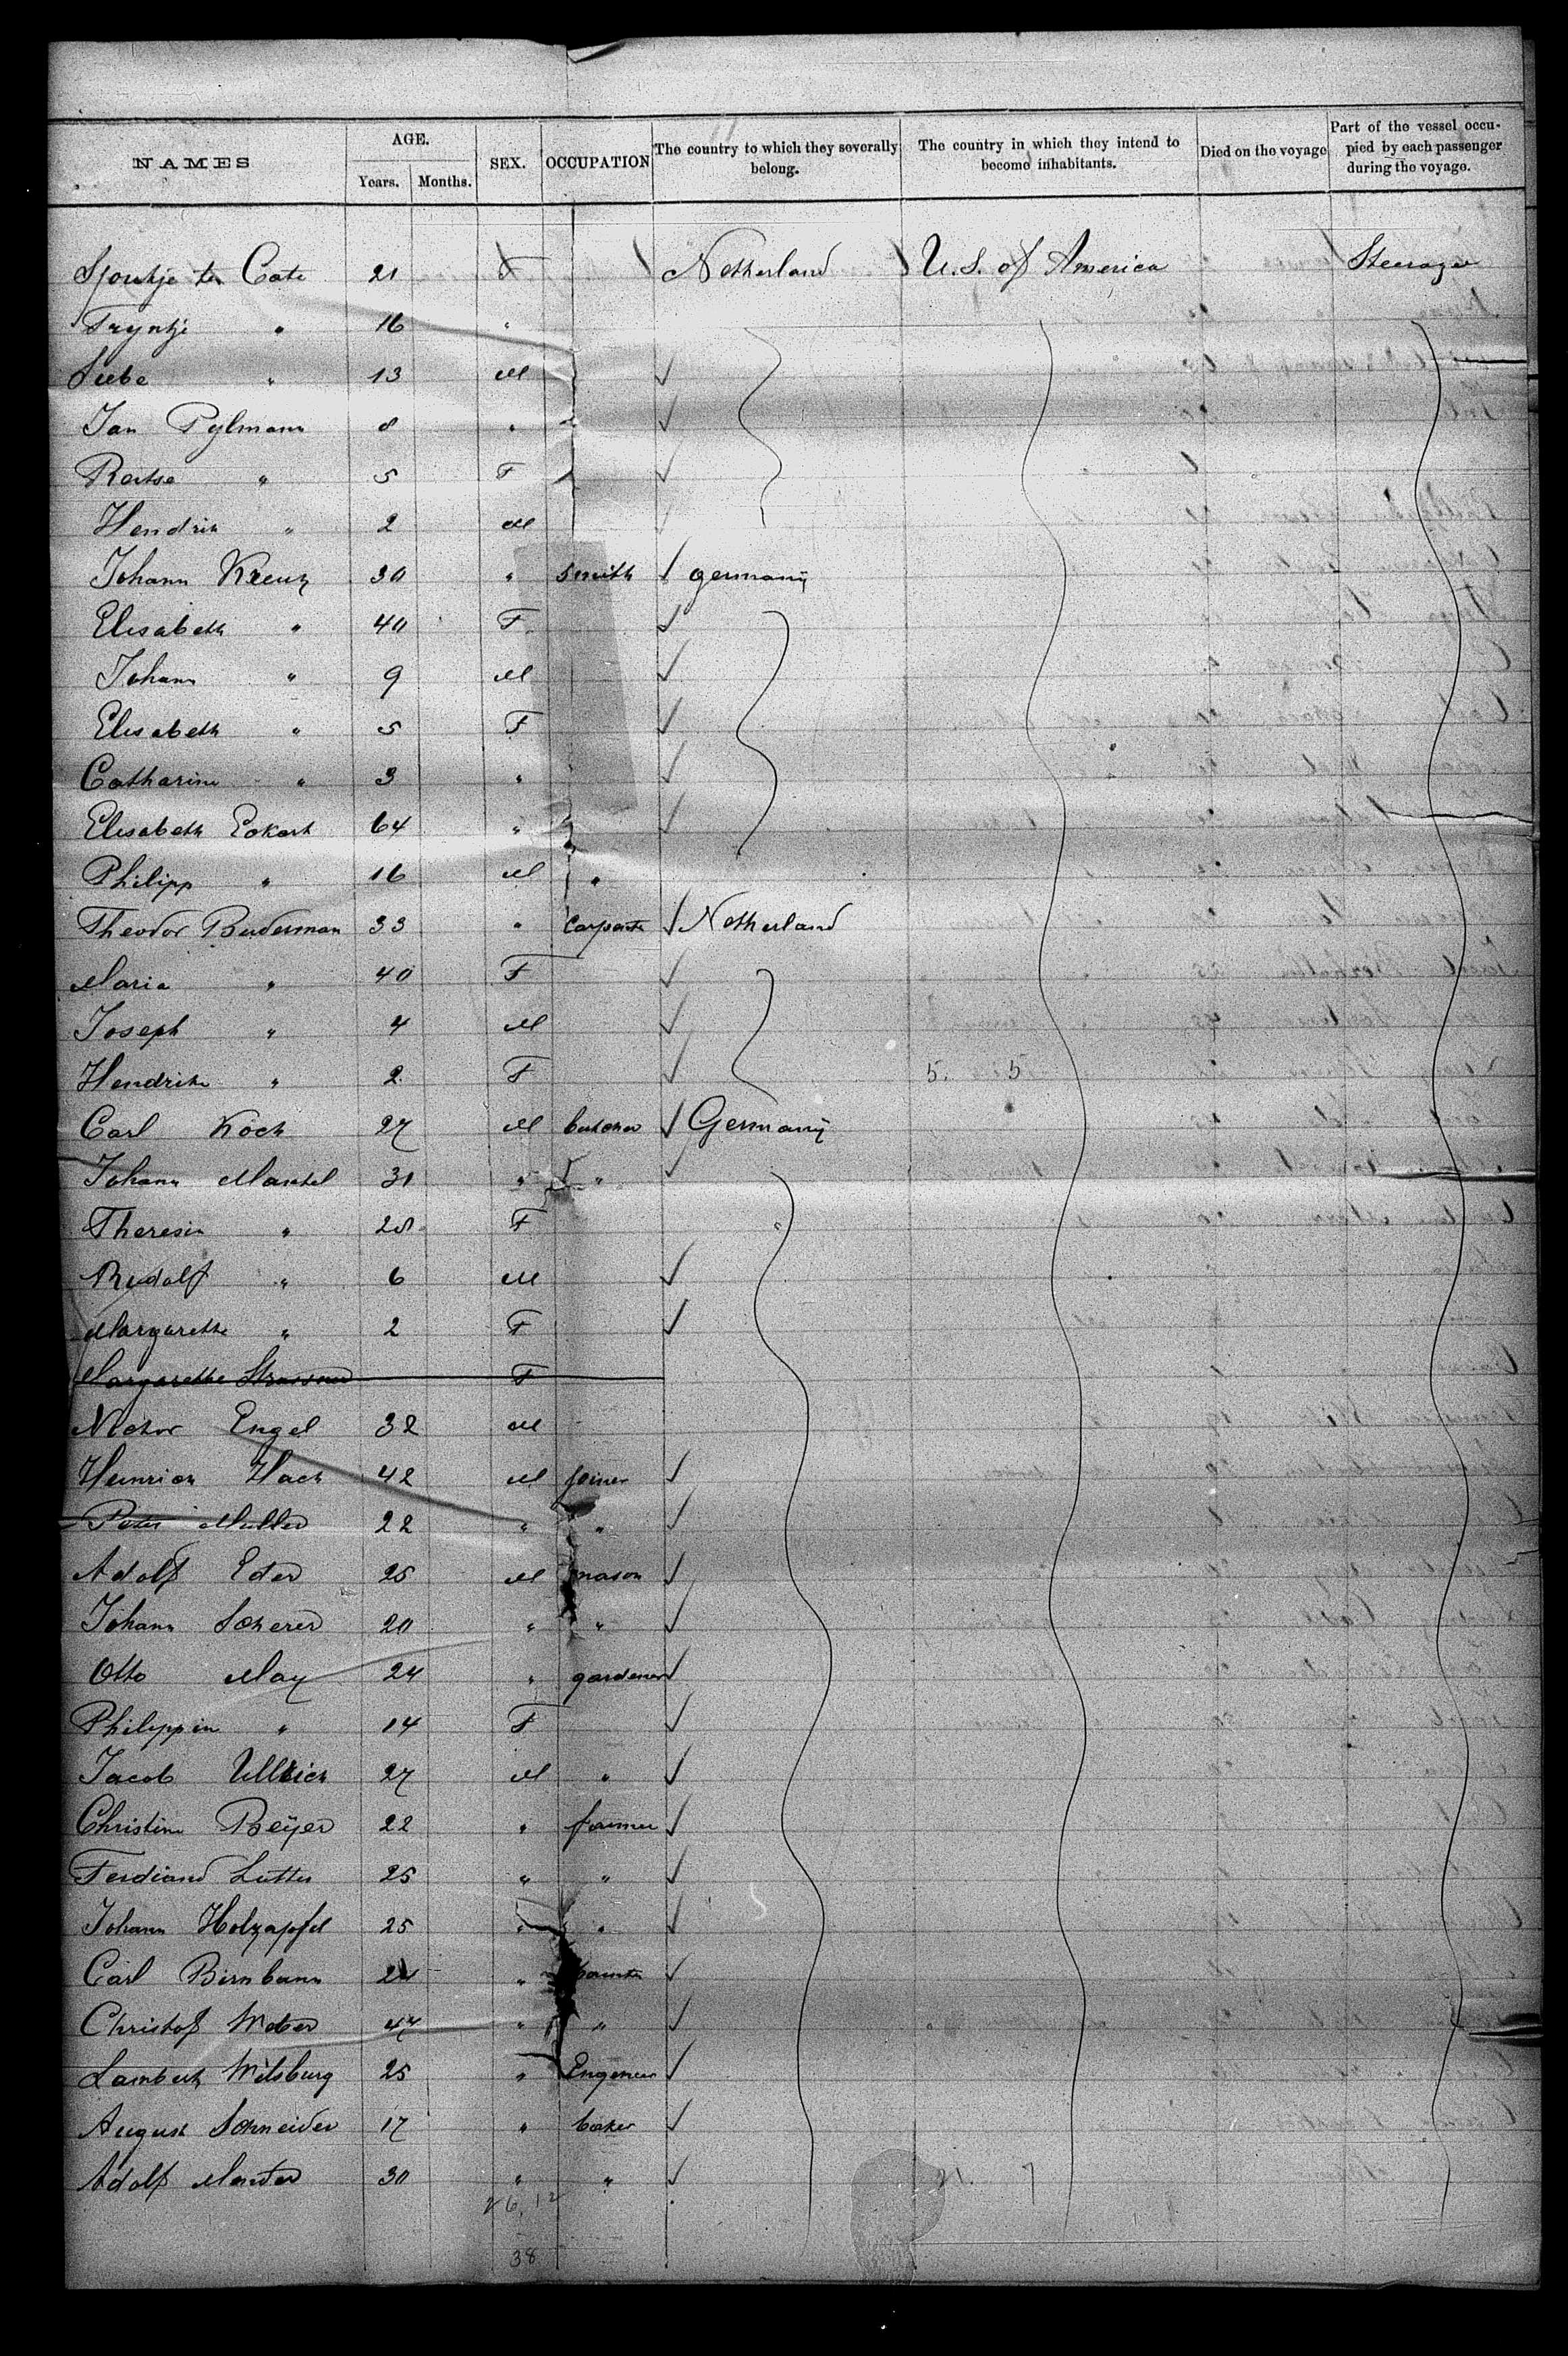 NAMES AGE. SEX. OCCUPATION The country to which they severally belong. The country in which they intend to become inhabitants. Died on the voyage Part of the vessel occupied by each passenger during the voyage.
Years. Months.
Sjoukje ten Cate 21 F Netherland U.S. of America Steerage
Tryntje " 16 "
Siebe " 13 M
Jan Pylmann 8 "
Reitse " 5 F
Hendrik " 2 M
Johann Kreutz 30 " smith Germany
Elisabeth " 40 F
Johann " 9 M
Elisabeth " 5 F
Catharine " 3 "
Elisabeth Eckart 64 "
Philipp " 16 M "
Theodor Buderman 33 " carpenter Netherland
Maria " 40 F
Joseph " 4 M
Hendrik " 2 F 5. 5
Carl Koch 27 M butcher Germany
Johann Mantel 31 " "
Theresia " 28 F
Rudolf " 6 M
Margarethe " 2 F
Margarethe F
Engel 32 M
Heinrich Hach 42 M joiner
Peter Muller 22 " "
Adolf Eder 25 M mason
Johann Scherer 20 " "
Otto May 24 " gardener
Philippin " 14 F
Jacob Ullrich 27 M "
Christine Beijer 22 " farmer
Ferdiand Lutter 25 " "
Johann Holzapfel 25 " "
Carl Birnbaum "
Christof Weber 47 " "
Lambert 25 " Engeneer
August Schneider 17 " baker
Adolf 30 " " 21. 7
26, 12
38